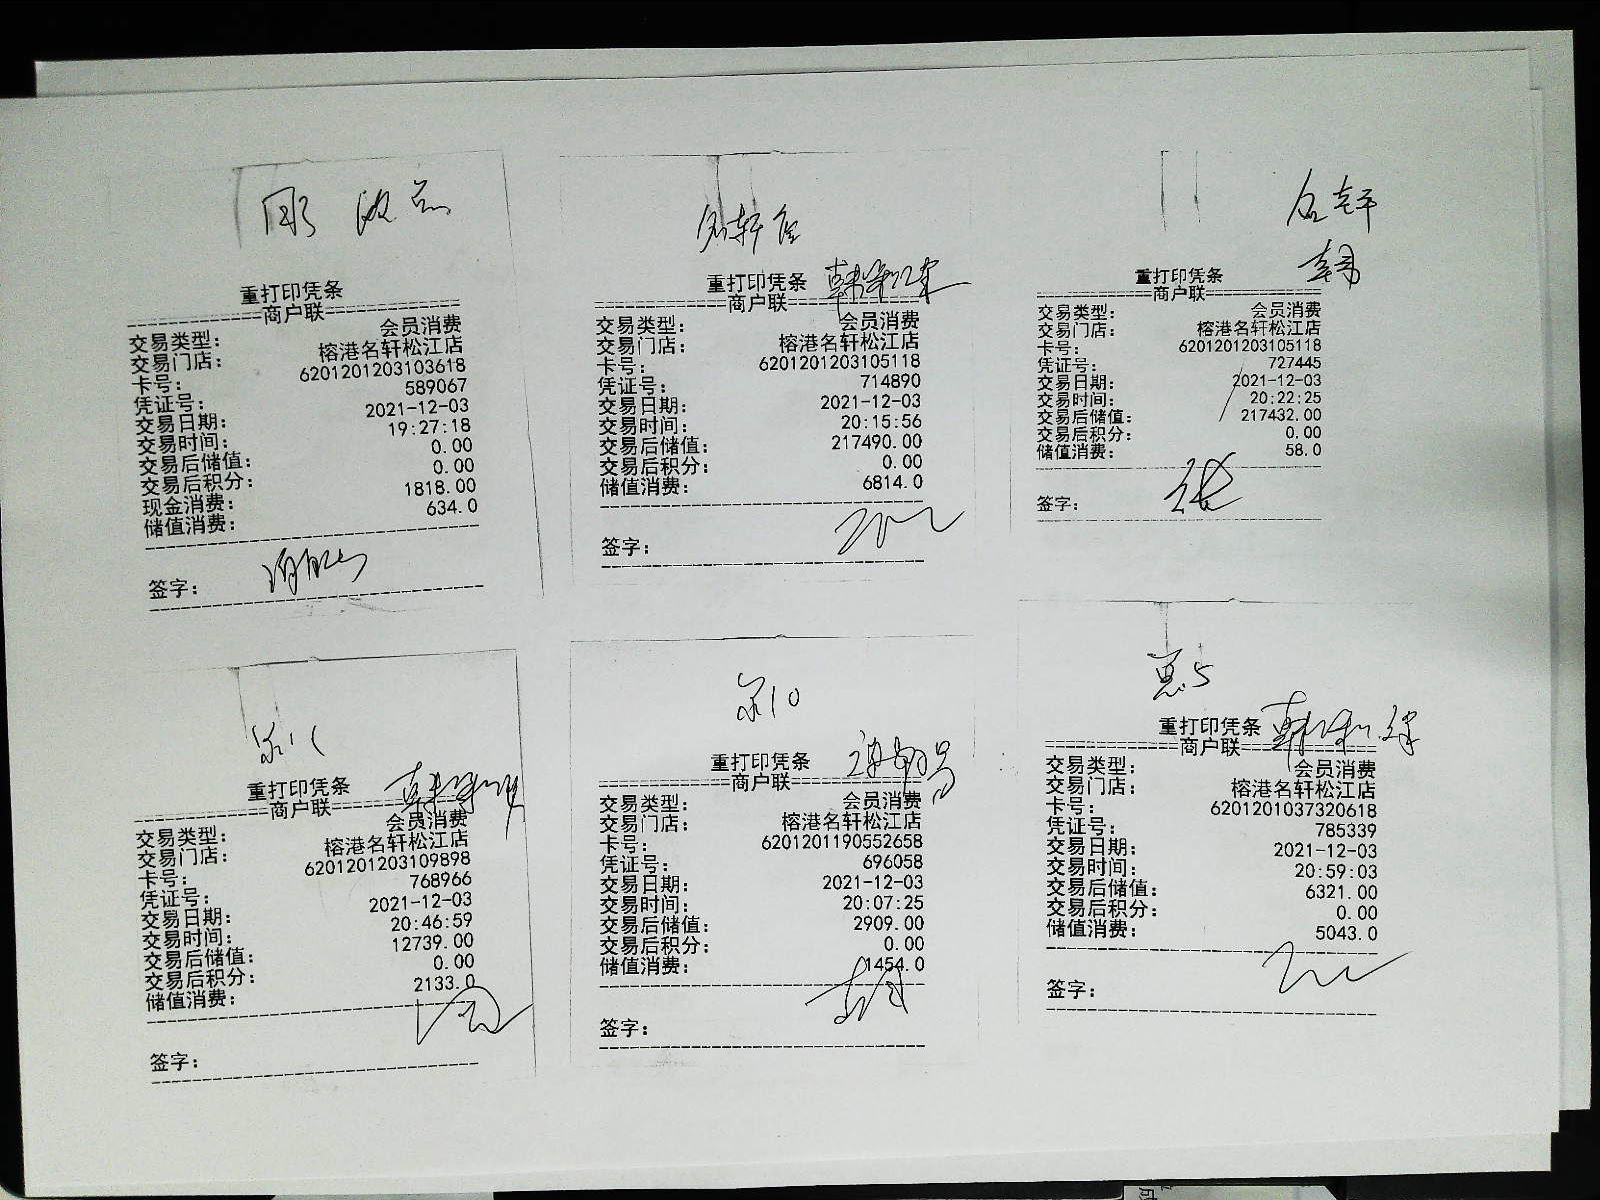 重打印凭条
商户联
交易类型： 会员消费
交易门店： 榕港名轩松江店
卡号： 6201201203103618
凭证号： 589067
交易日期： 2021-12-03
交易时间： 19:27:18
交易后储值： 0.00
交易后积分： 0.00
现金消费： 1818.00
储值消费： 634.0
签字：
重打印凭条
商户联
交易类型： 会员消费
交易门店： 榕港名轩松江店
卡号： 6201201203105118
凭证号： 714890
交易日期： 2021-12-03
交易时间： 20:15:56
交易后储值： 217490.00
交易后积分： 0.00
储值消费： 6814.0
签字：
名轩
重打印凭条
商户联
交易类型： 会员消费
交易门店： 榕港名轩松江店
卡号： 6201201203105118
凭证号： 727445
交易日期： 2021-12-03
交易时间： 20:22:25
交易后储值： 217432.00
交易后积分： 0.00
储值消费： 58.0
签字：
重打印凭条
商户联
交易类型： 会员消费
交易门店： 榕港名轩松江店
卡号： 6201201203109898
凭证号： 768966
交易日期： 2021-12-03
交易时间： 20:46:59
交易后储值： 12739.00
交易后积分： 0.00
储值消费： 2133.0
签字：
重打印凭条
商户联
交易类型： 会员消费
交易门店： 榕港名轩松江店
卡号： 6201201190552658
凭证号： 696058
交易日期： 2021-12-03
交易时间： 20:07:25
交易后储值： 2909.00
交易后积分： 0.00
储值消费： 1454.0
签字：
重打印凭条
商户联
交易类型： 会员消费
交易门店： 榕港名轩松江店
卡号： 6201201037320618
凭证号： 785339
交易日期： 2021-12-03
交易时间： 20:59:03
交易后储值： 6321.00
交易后积分： 0.00
储值消费： 5043.0
签字：